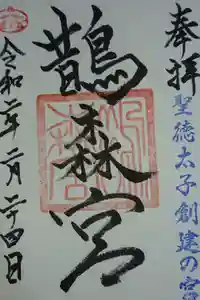 奉拝
聖徳太子創建の宮
鵲森宮
令和二年二月二十四日